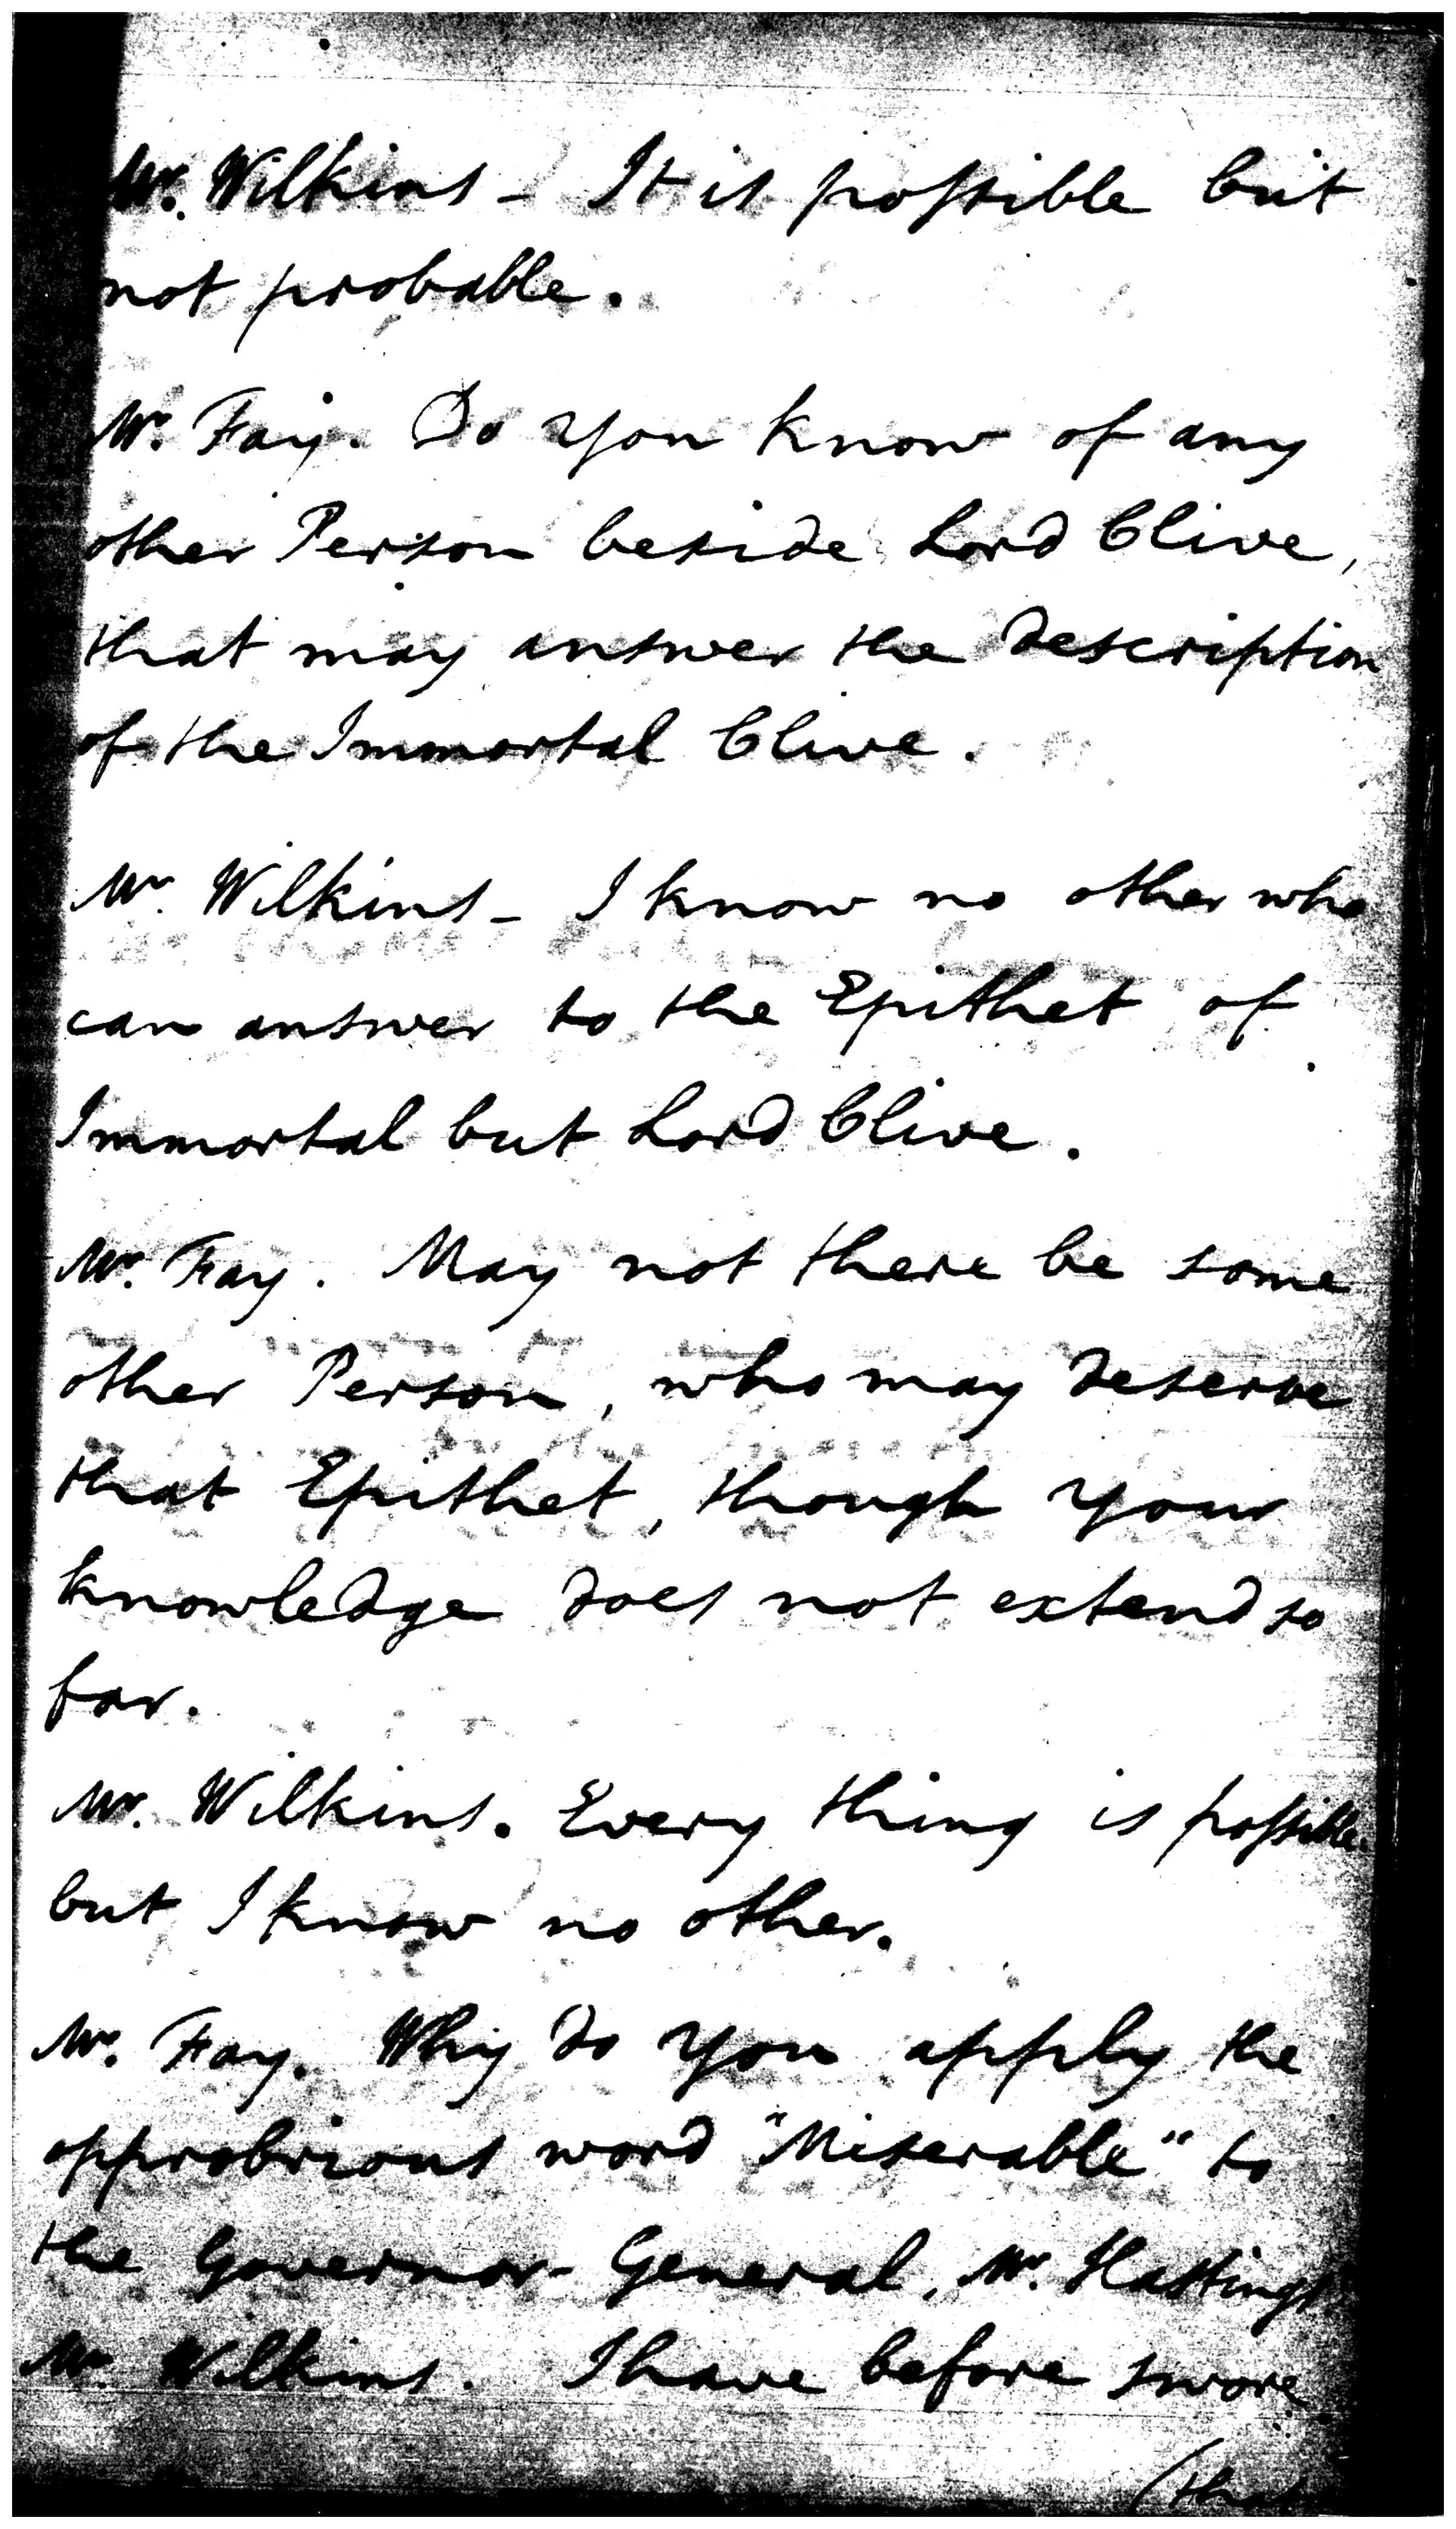 Mr. Wilkins - It is possible but
not probable.
Mr. Fay. Do you know of any
other Person beside Lord Clive,
that may answer the description
of the Immortal Clive.
Mr. Wilkins - I know no other who
can answer to the Epithet of
Immortal but Lord Clive.
Mr. Fay. May not there be some
other Person, who may deserve
that Epithet, though your
knowledge does not extend so
far.
Mr. Wilkins. Every thing is possible
but I know no other.
Mr. Fay. Why do you apply the
opprobrious word "Miserable" to
the Governor-General, Mr. Hastings
Mr. Wilkins. I have before swore
(that